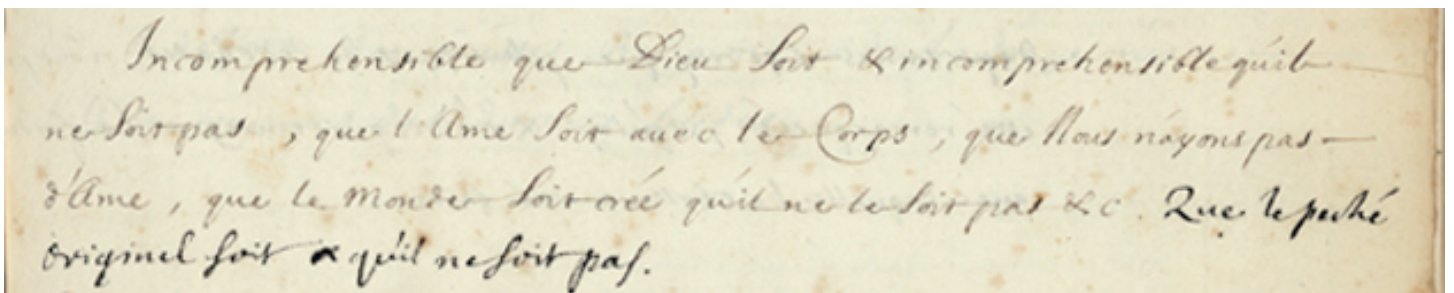 Incomprehensible que Dieu soit & incomprehensible quil
ne soit pas, que l'Ame soit auec le Corps, que Nous n'ayons pas
d'Ame, que le Monde soit créé quil ne le soit pas &c. Que le peché
originel soit & qu'il ne soit pas.